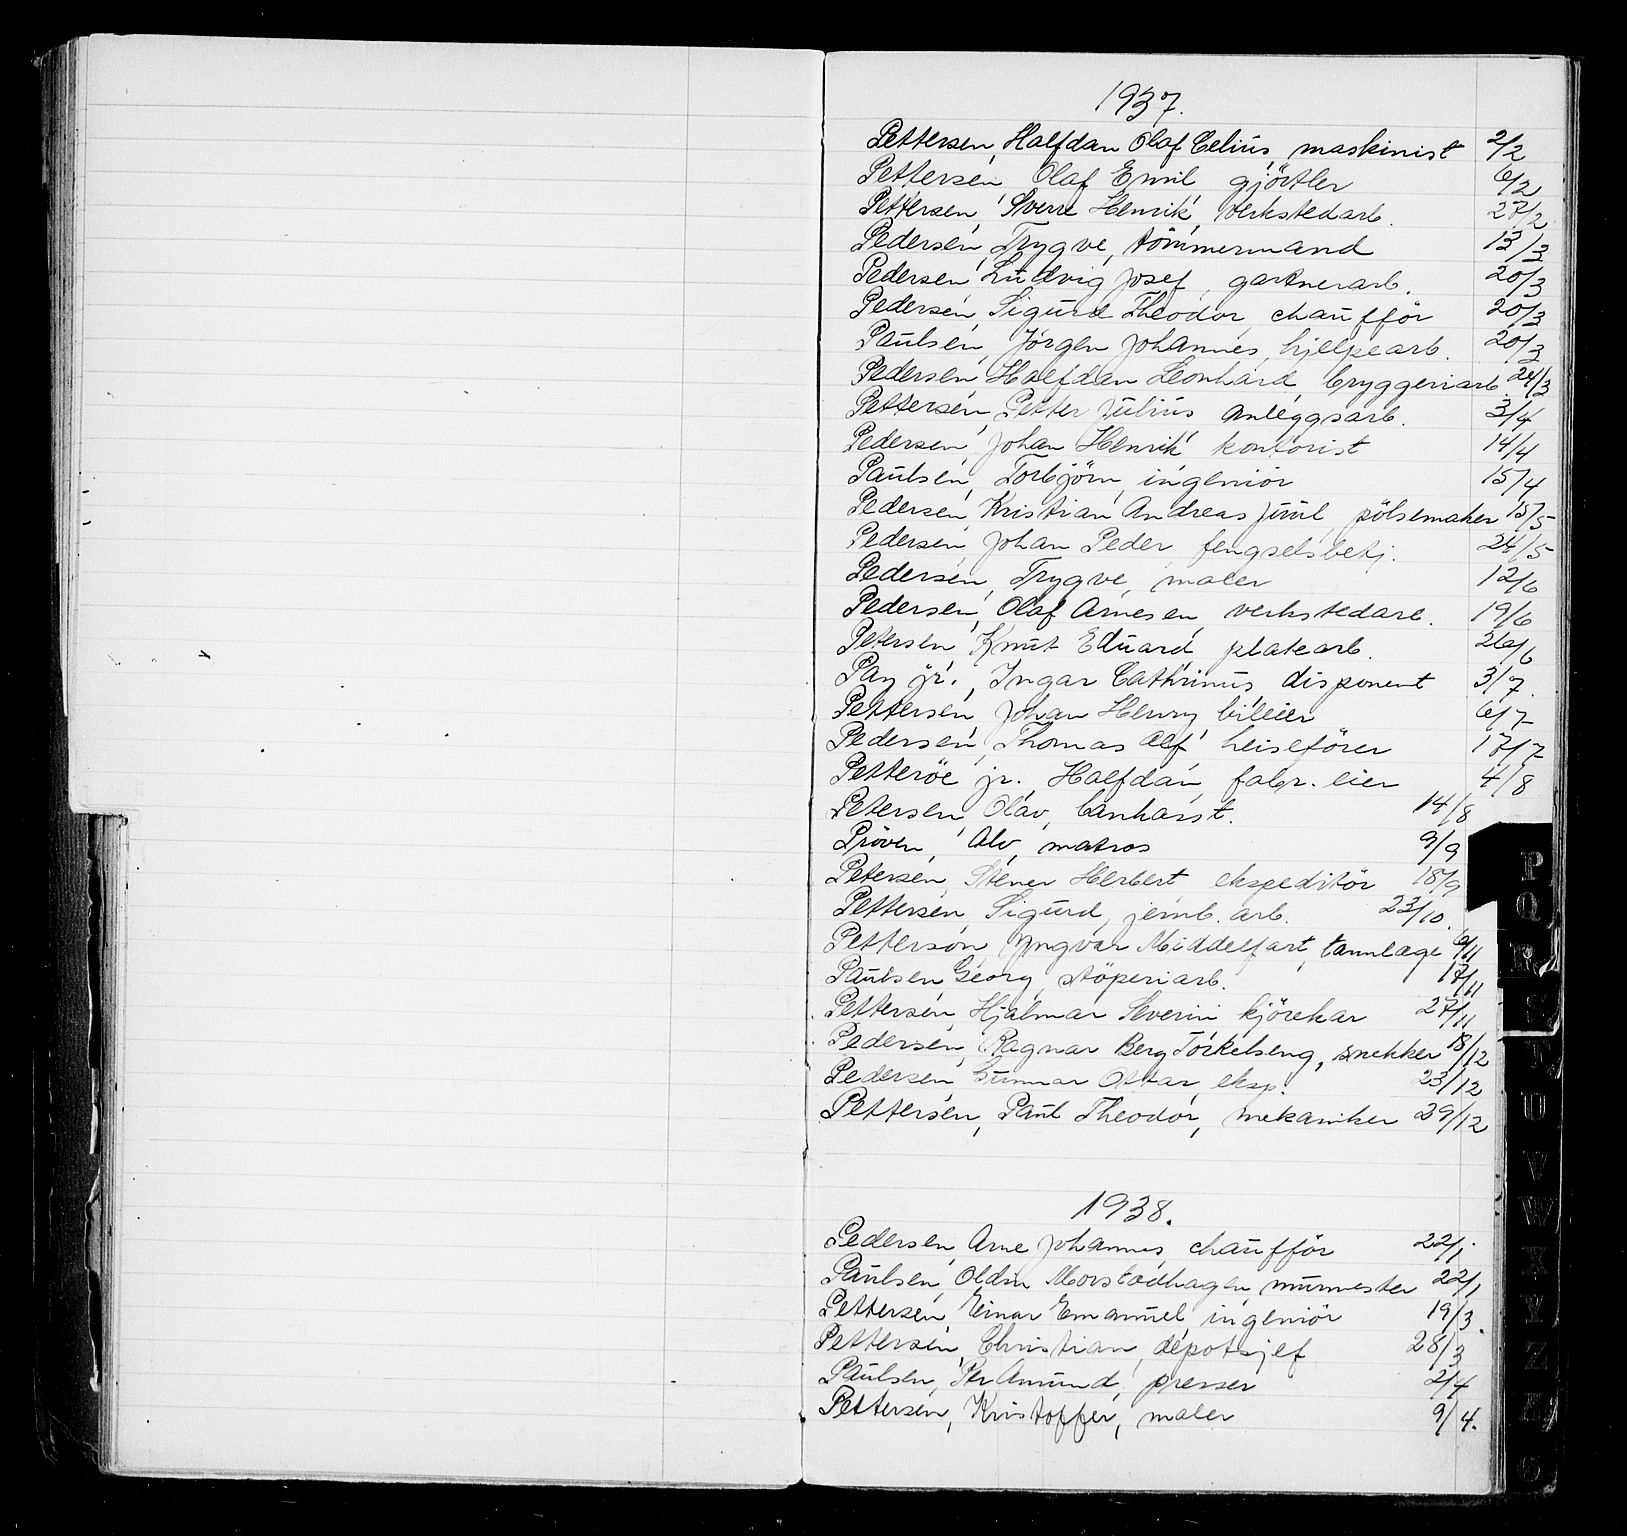 1937.
Pettersen, Halfdan Olaf Celius, maskinist 2/2
Pettersen, Olaf Emil, gjørtler 6/2
Pettersen, Sverre Henrik, verkstedarb. 27/2
Pedersen, Trygve, tömmermand 13/3
Pedersen, Ludvig Josef, gartnerarb. 20/3
Pedersen, Sigurd Theodor, chaufför 20/3
Paulsen, Jörgen Johannes, hjelpearb. 20/3
Pedersen, Halfdan Leonhard, bryggeriarb. 24/3
Pettersen, Petter Julius, anleggsarb. 3/4
Pedersen, Johan Henrik, kontorist 14/4
Paulsen, Torbjörn, ingeniör 15/4
Pedersen, Kristian Andreas Juul, pölsemaker 15/5
Pedersen, Johan Peder, fengselsbetj. 24/5
Pedersen, Trygve, maler 12/6
Pedersen, Olaf Arnesen, verkstedarb. 19/6
Petersen, Knut Eduard, platearb. 26/6
Pay jr., Ingar Cathrinus, disponent 3/7.
Pettersen, Johan Henry, bileier 6/7
Pedersen, Thomas Alf, heisefører 17/7
Petteröe jr. Halfdan, fabr. eier 4/8
Petersen, Olav, bankass't. 14/8
Pröven, Alv, matros 9/9
Petersen, Stener Herbert, ekspeditör 18/9
Pettersen, Sigurd, jernb. arb. 23/10.
Petterson, Yngvar Middelfart, tannlæge 6/11
Paulsen, Georg, stöperiarb. 17/11
Pettersen, Hjalmar Severin, kjörekar 27/11
Pedersen, Ragnar Berg Torkelseng, snekker 18/12
Pedersen, Gunnar Ottar, eksp. 23/12
Pettersen, Paul Theodor, mekaniker 29/12
1938.
Pedersen, Arne Johannes, chaufför 22/1.
Paulsen, Oldin murmester 22/1
Pettersen, Einar Emanuel, ingeniör 19/3.
Pettersen, Christian, depotsjef 28/3
Paulsen, Per Amund, presser 2/4
Pettersen, Kristoffer, maler 9/4.
P
Q
R
S
T
U
V
W
X
Y
Z
Æ
Ö